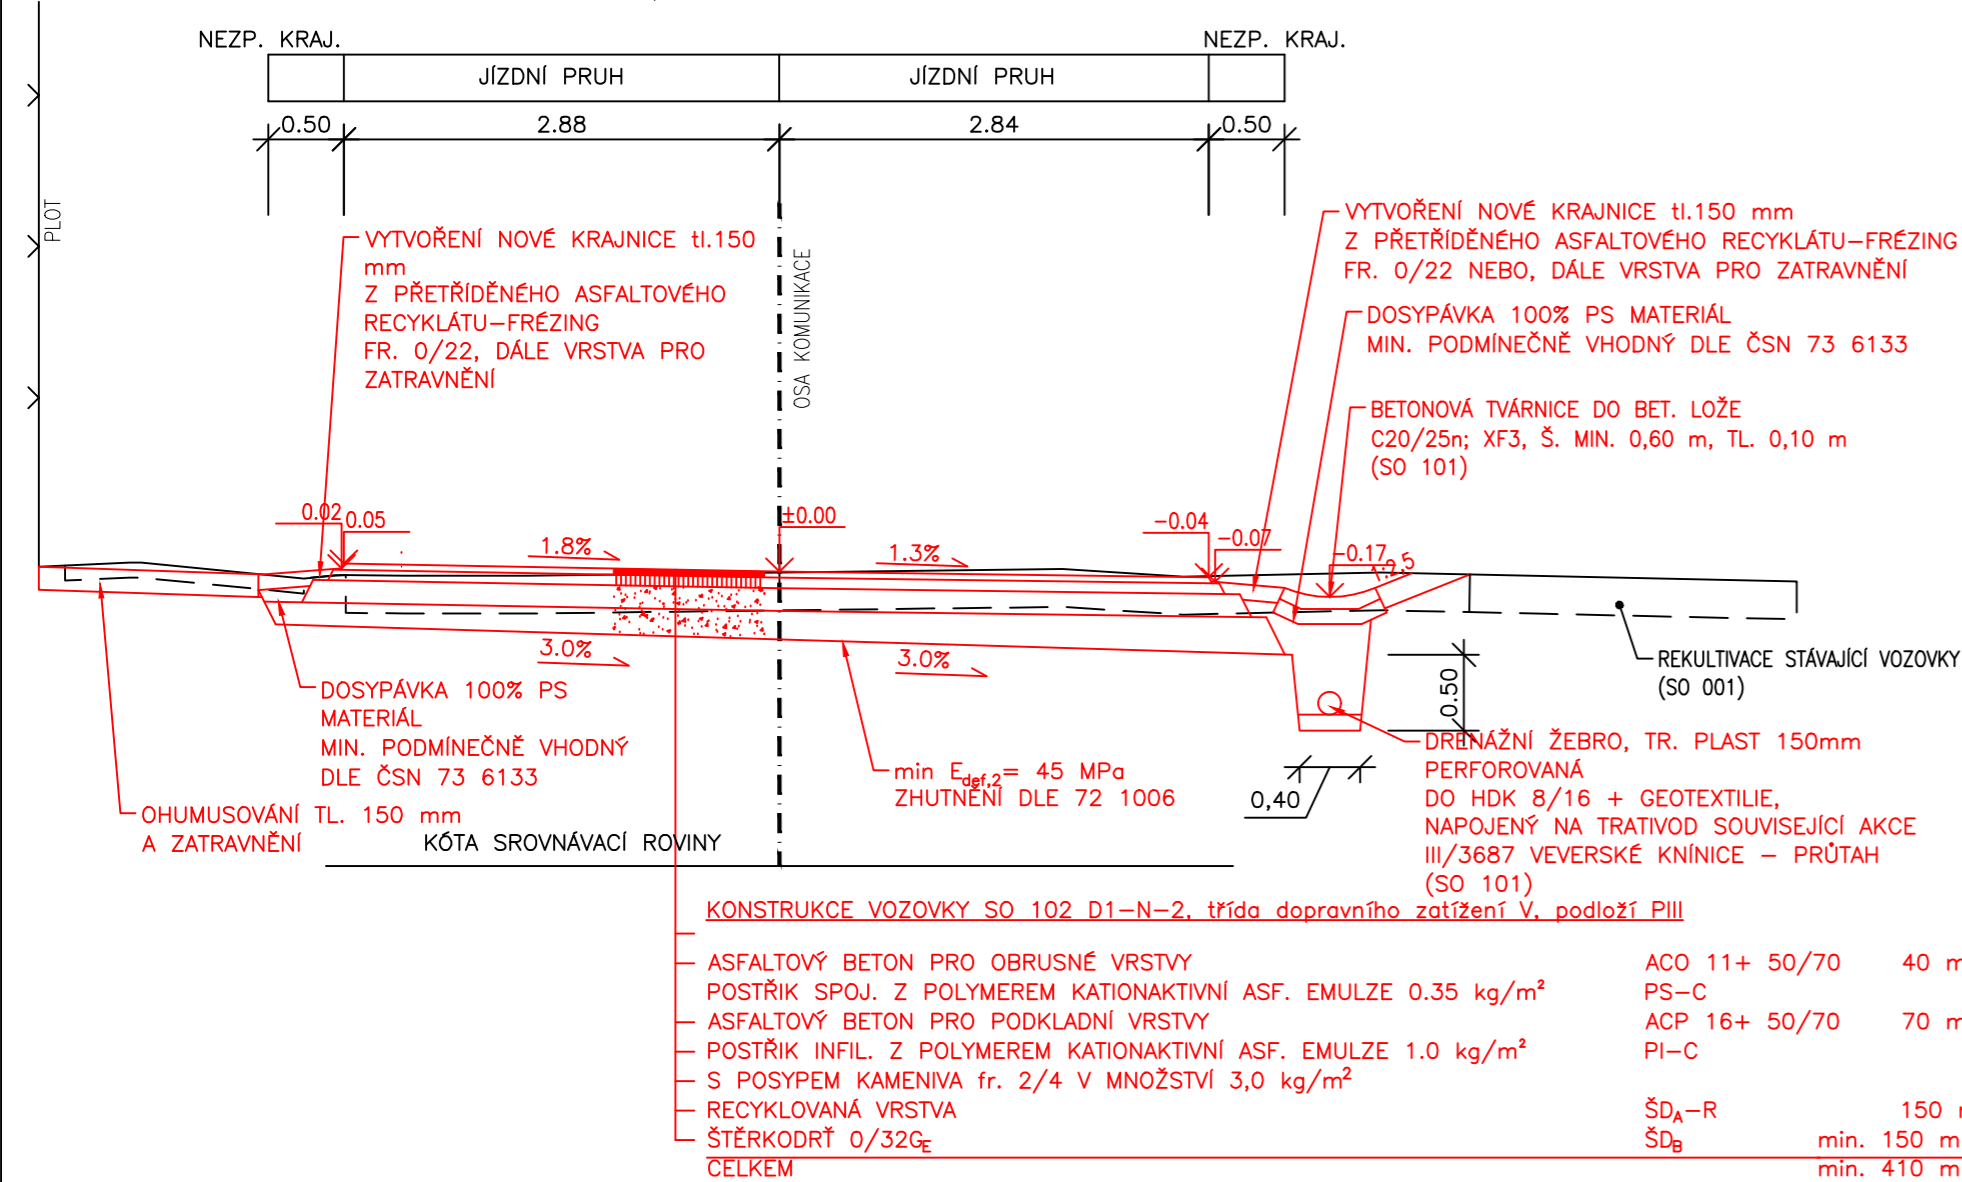 NEZP. KRAJ.
NEZP. KRAJ.
JÍZDNÍ PRUH
JÍZDNÍ PRUH
0.50
2.88
2.84
0.50
PLOT
VYTVOŘENÍ NOVÉ KRAJNICE tl.150
mm
Z PŘETŘÍDĚNÉHO ASFALTOVÉHO
RECYKLÁTU-FRÉZING
FR. 0/22, DÁLE VRSTVA PRO
ZATRAVNĚNÍ
OSA KOMUNIKACE
VYTVOŘENÍ NOVÉ KRAJNICE tl.150 mm
Z PŘETŘÍDĚNÉHO ASFALTOVÉHO RECYKLÁTU-FRÉZING
FR. 0/22 NEBO, DÁLE VRSTVA PRO ZATRAVNĚNÍ
DOSYPÁVKA 100% PS MATERIÁL
MIN. PODMÍNEČNĚ VHODNÝ DLE ČSN 73 6133
BETONOVÁ TVÁRNICE DO BET. LOŽE
C20/25n; XF3, Š. MIN. 0,60 m, TL. 0,10 m
(SO 101)
0.02
0.05
±0.00
-0.04
-0.07
-0.17
1:2,5
1.8%
1.3%
3.0%
3.0%
DOSYPÁVKA 100% PS
MATERIÁL
MIN. PODMÍNEČNĚ VHODNÝ
DLE ČSN 73 6133
OHUMUSOVÁNÍ TL. 150 mm
A ZATRAVNĚNÍ
KÓTA SROVNÁVACÍ ROVINY
min Edef,2= 45 MPa
ZHUTNĚNÍ DLE 72 1006
0.50
0,40
REKULTIVACE STÁVAJÍCÍ VOZOVKY
(SO 001)
DRENÁŽNÍ ŽEBRO, TR. PLAST 150mm
PERFOROVANÁ
DO HDK 8/16 + GEOTEXTILIE,
NAPOJENÝ NA TRATIVOD SOUVISEJÍCÍ AKCE
III/3687 VEVERSKÉ KNÍNICE - PRŮTAH
(SO 101)
KONSTRUKCE VOZOVKY SO 102 D1-N-2, třída dopravního zatížení V, podloží PIII
ASFALTOVÝ BETON PRO OBRUSNÉ VRSTVY ACO 11+ 50/70 40 m
POSTŘIK SPOJ. Z POLYMEREM KATIONAKTIVNÍ ASF. EMULZE 0.35 kg/m² PS-C
ASFALTOVÝ BETON PRO PODKLADNÍ VRSTVY ACP 16+ 50/70 70 m
POSTŘIK INFIL. Z POLYMEREM KATIONAKTIVNÍ ASF. EMULZE 1.0 kg/m² PI-C
S POSYPEM KAMENIVA fr. 2/4 V MNOŽSTVÍ 3,0 kg/m²
RECYKLOVANÁ VRSTVA ŠDA-R 150
ŠTĚRKODRŤ 0/32GE ŠDB min. 150 m
CELKEM min. 410 m